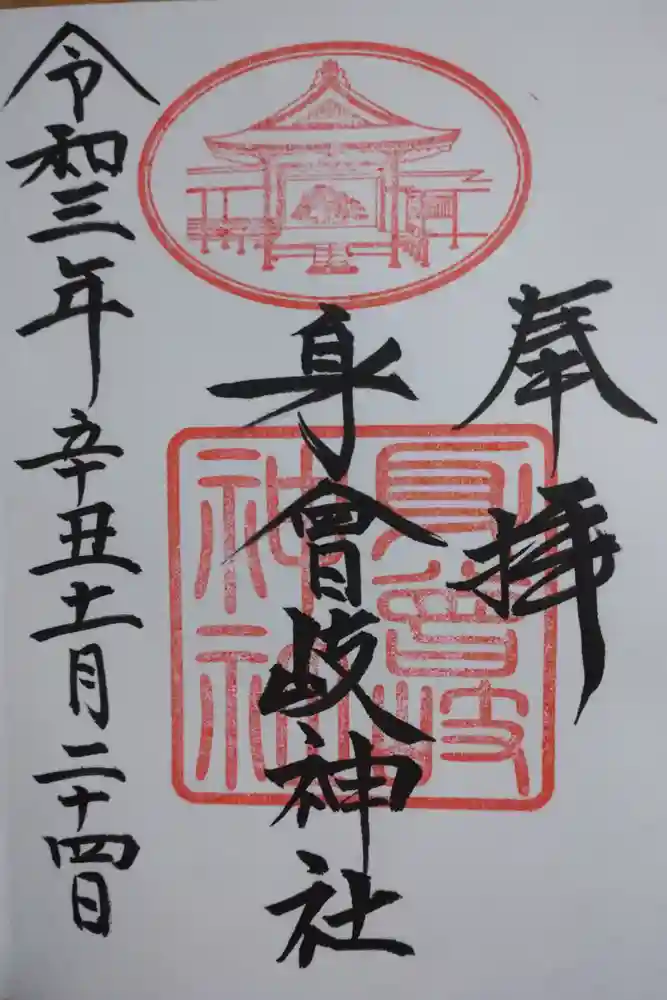 奉拝
身曾岐神社
令和三年辛丑十一月二十四日
身曾岐
神社